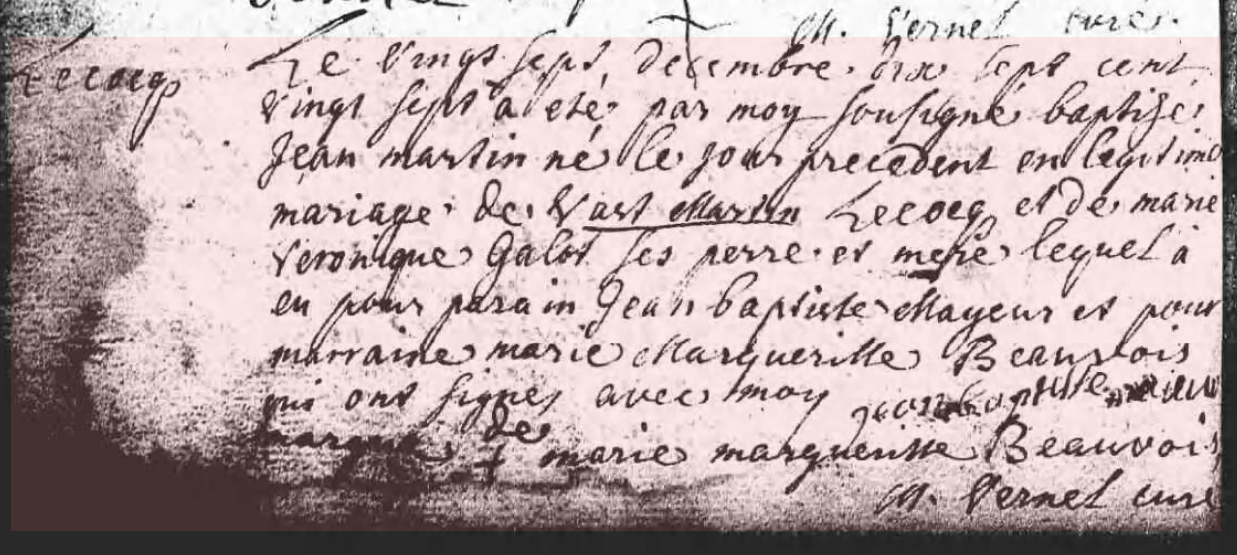 M. Vernel curé.
Lecocq
Le vingt sept, decembre. dix sept cent
vingt sept a eté par moy sousigné baptisé
Jean martin né le jour precedent en legitime
mariage de Vast Martin Lecocq et de marie
Veronique Galot ses perre et mere lequel à
eu pour parain Jean baptiste Mayeur et pour
marraine marie Margueritte Beauvois
qui ont signes avec moy jean baptiste maieur
marque de + marie margueritte Beauvois
M. Vernel curé